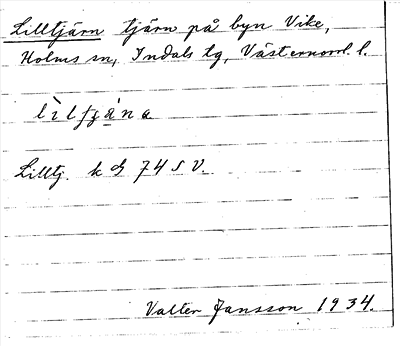 Lilltjärn tjärn på byn Vike,
Holms sn, Indals tg, Västernorrl. l.
Lilltj. k 74 S V.
Valter Jansson 1934.